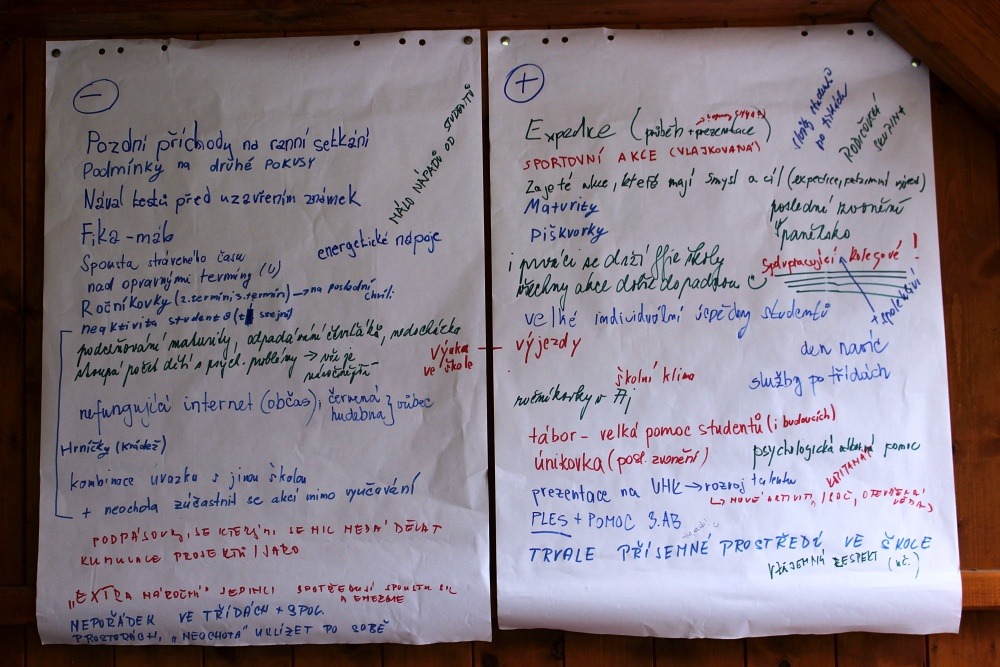 −
Pozdní příchody na ranní setkání
Podmínky na druhé pokusy
Nával testů před uzavřením známek
MÁLO NÁPADŮ OD STUDENTŮ
Fika - málo
energetické nápoje
Spousta stráveného času
nad opravnými termíny (4)
Ročníkovky (2. termín 3. termín) → na poslední chvíli
neaktivita studentů (ti stejní)
podceňování maturity, odpadávání čtvrťáků, nedocházka
stoupá počet dětí s psych. problémy → vše je náročnější
Výuka ve škole
nefungující internet (občas); červená hudebna } vůbec
Hrníčky (krádež)
kombinace úvazku s jinou školou
+ neochota zúčastnit se akcí mimo vyučování
PODPÁSOVKY, SE KTERÝMI SE NIC NEDÁ DĚLAT
KUMULACE PROJEKTŮ / JARO
„EXTRA NÁROČNÍ" JEDINCI SPOTŘEBUJÍ SPOUSTU SIL A ENERGIE
NEPOŘÁDEK VE TŘÍDÁCH + SPOL.
PROSTORÁCH, „NEOCHOTA" UKLÍZET PO SOBĚ
+
Expedice (průběh + prezentace)
SPORTOVNÍ AKCE (VLAJKOVANÁ)
služby studentů po třídách
RODIČOVSKÉ SKUPINY
Zajeté akce, které mají smysl a cíl (expedice, putovní výjezd)
Maturity
poslední zvonění
Piškvorky
španělsko
i prváci se drží fíjie školy
Spolupracující kolegové !
všechny akce dobře dopadnou
velké individuální úspěchy studentů
výjezdy
den navíc
školní klima
služby po třídách
ročníkovky v Aj
tábor - velká pomoc studentů (i budoucích)
únikovka (posl. zvonění)
psychologická odborná pomoc
prezentace na UHK → rozvoj talentu
NOVÉ AKTIVITY, SOČ, OTEVŘENÁ VĚDA
PLES + POMOC 3.AB
TRVALE PŘÍJEMNÉ PROSTŘEDÍ VE ŠKOLE
VZÁJEMNÝ RESPEKT (uč.)